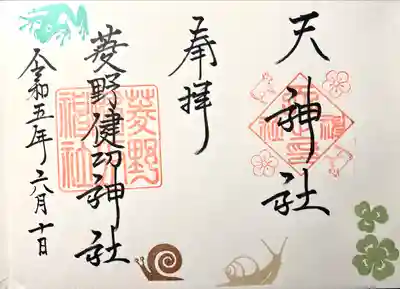 天神社
奉拝
菱野健功神社
菱野
神社
令和五年六月十日